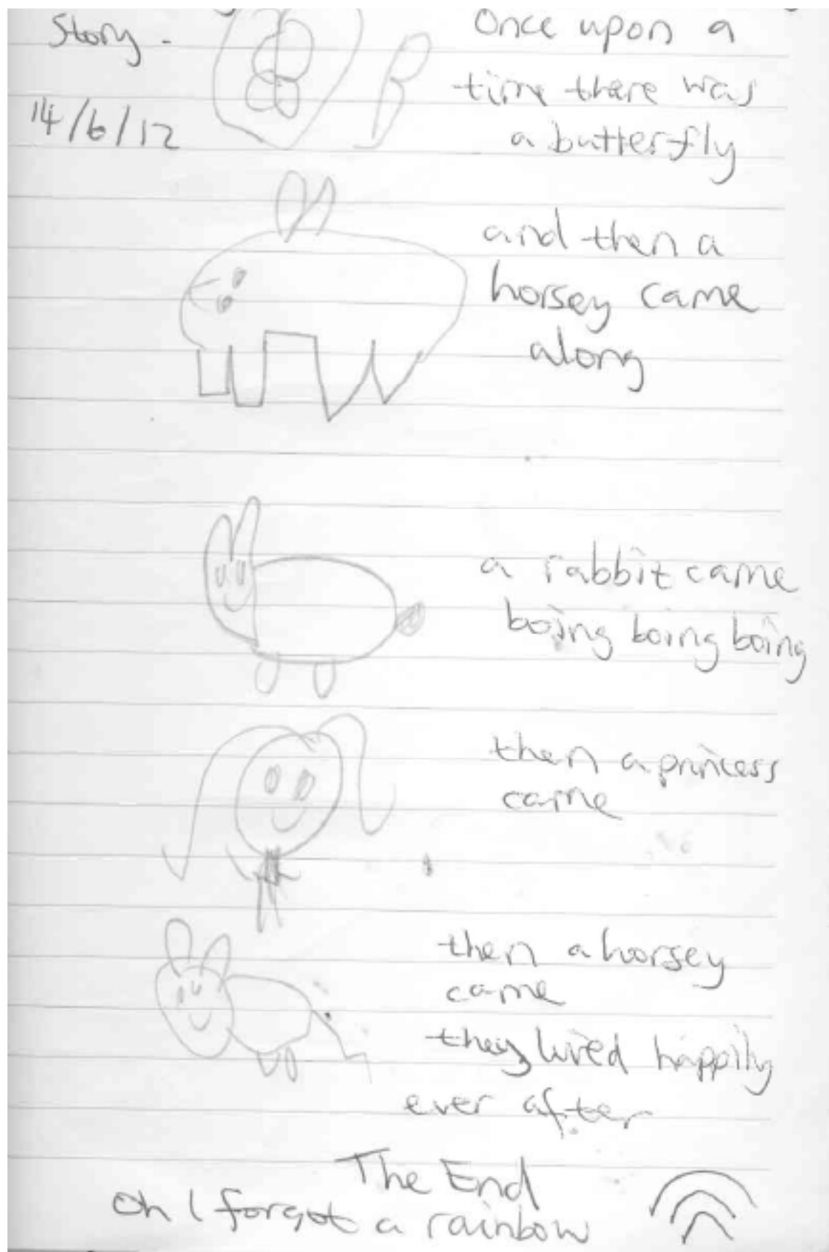 Story -
14/6/12
Once upon a
time there was
a butterfly
and then a
horsey came
along
a rabbit came
boing boing boing
then a princess
came
then a horsey
came
they lived happily
ever after
The End
Oh I forgot a rainbow